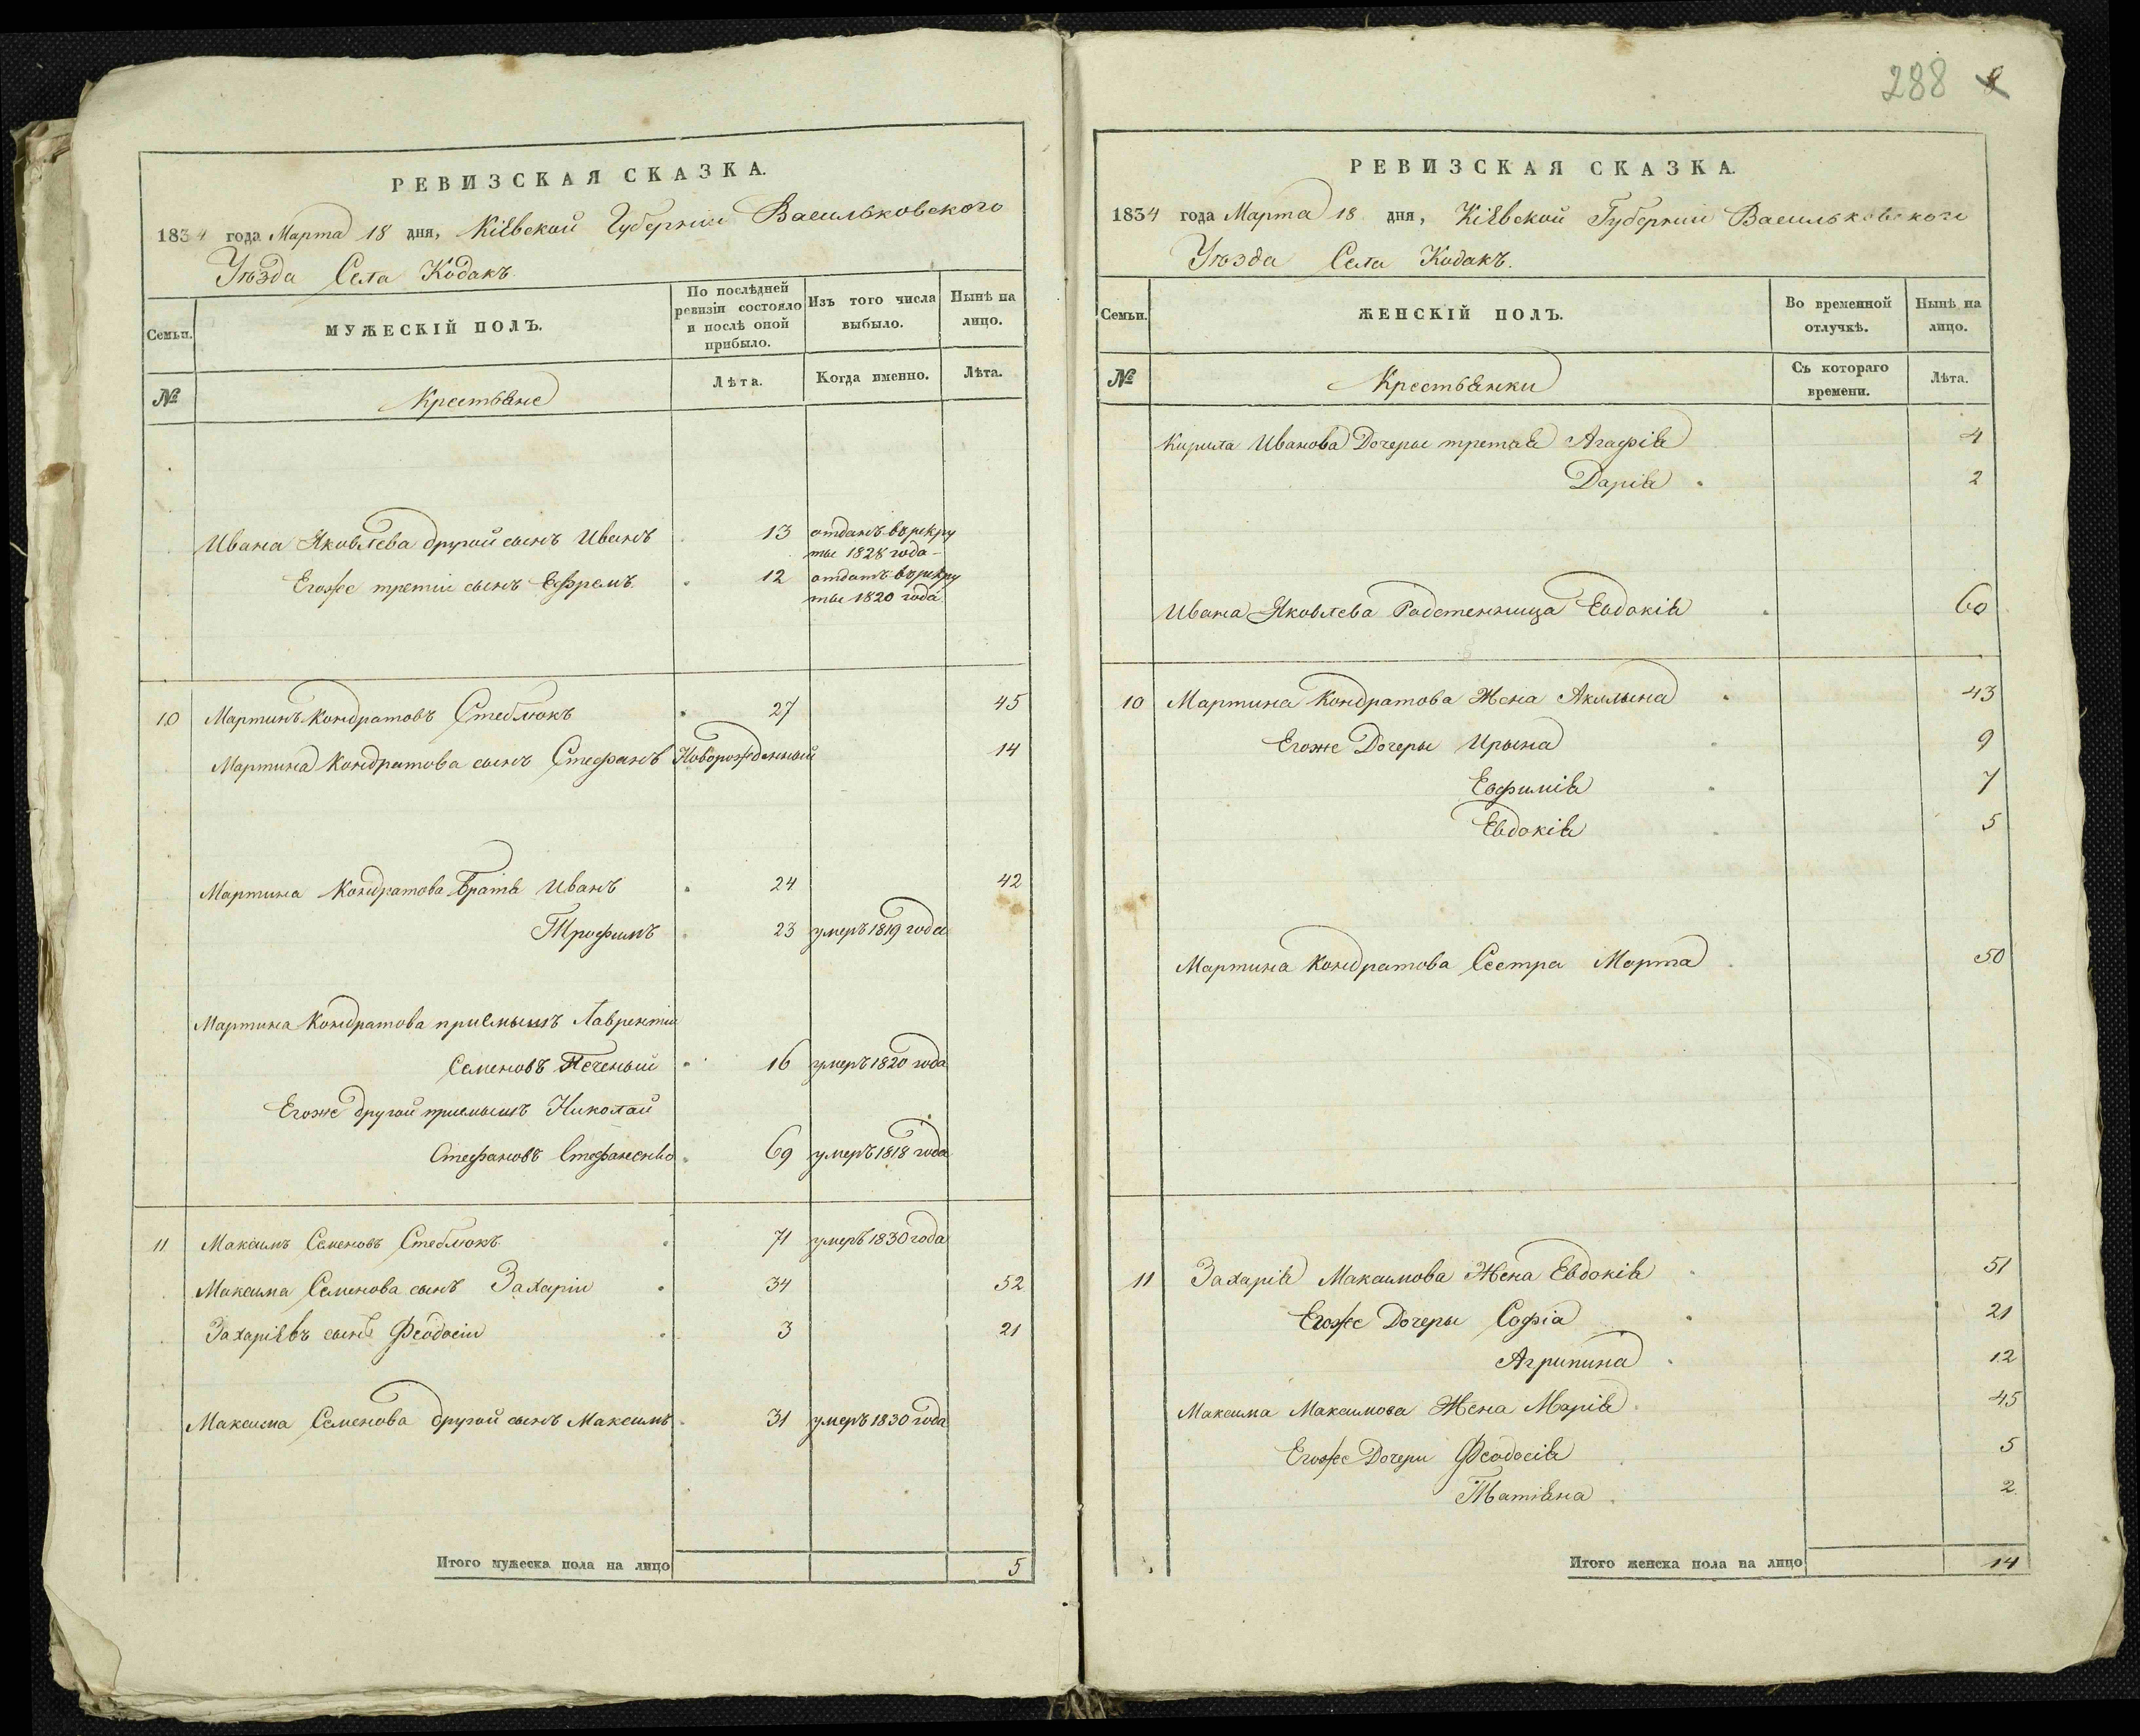 288
РЕВИЗСКАЯ СКАЗКА.
1834 года Марта 18 дня, Кіевской Губерніи Васильковского
Уѣзда Села Кодакъ.
Семьи.
МУЖЕСКІЙ ПОЛЪ.
По послѣдней ревизіи состояло и послѣ оной прибыло.
Изъ того числа выбыло.
Нынѣ на лицо.
№
Крестьяне
Лѣта.
Когда именно.
Лѣта.
Ивана Яковлева другой сынъ Иванъ 13 отданъ в рекру
ты 1828 года
Егоже третій сынъ Ефремъ 12 отданъ в рекру
ты 1820 года
10 Мартинъ Кондратовъ Стеблюкъ 27 45
Мартина Кондратова сынъ Стефанъ Новорожденный 14
Мартина Кондратова братъя Иванъ 24 42
Трофимъ 23 умеръ 1819 года
Мартина Кондратова приемышъ Лаврентій
Семеновъ Печеный 16 умеръ 1820 года
Егоже другой приемышъ Николай
Стефановъ Стефаненко 69 умеръ 1818 года
11 Максимъ Семеновъ Стеблюкъ 71 умеръ 1830 года
Максима Семенова сынъ Захарій 34 52
Захаріевъ сынъ Феодосій 3 21
Максима Семенова другой сынъ Максимъ 31 умеръ 1830 года
Итого мужеска пола на лицо 5
РЕВИЗСКАЯ СКАЗКА.
1834 года Марта 18 дня, Кіевской Губерніи Васильковского
Уѣзда Села Кодакъ.
Семьи.
ЖЕНСКІЙ ПОЛЪ.
Во временной отлучкѣ.
Нынѣ на лицо.
№
Крестьянки
Съ котораго времени.
Лѣта.
Кирила Иванова Дочеры третая Агафія 4
Дарія 2
Ивана Яковлева Родственница Евдокія 60
10 Мартина Кондратова Жена Акилына 43
Егоже Дочеры Ирына 9
Евфимія 7
Евдокія 5
Мартина Кондратова Сестра Марта 50
11 Захарія Максимова Жена Евдокія 51
Егоже Дочеры Софія 21
Агрипина 12
Максима Максимова Жена Марія 45
Егоже Дочери Феодосія 5
Татіяна 2
Итого женска пола на лицо 14